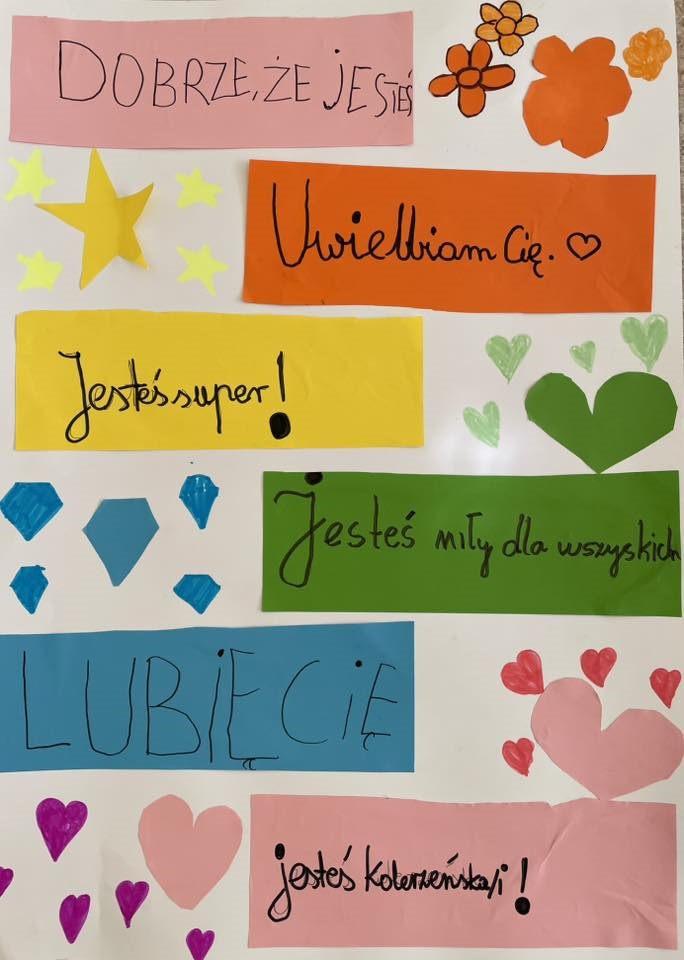 DOBRZE, ŻE jESTEŚ
Uwielbiam Cię. ♡
Jesteś super!
Jesteś miły dla wszyskich
LUBIĘ CIĘ
jesteś kolerzeńska/i!